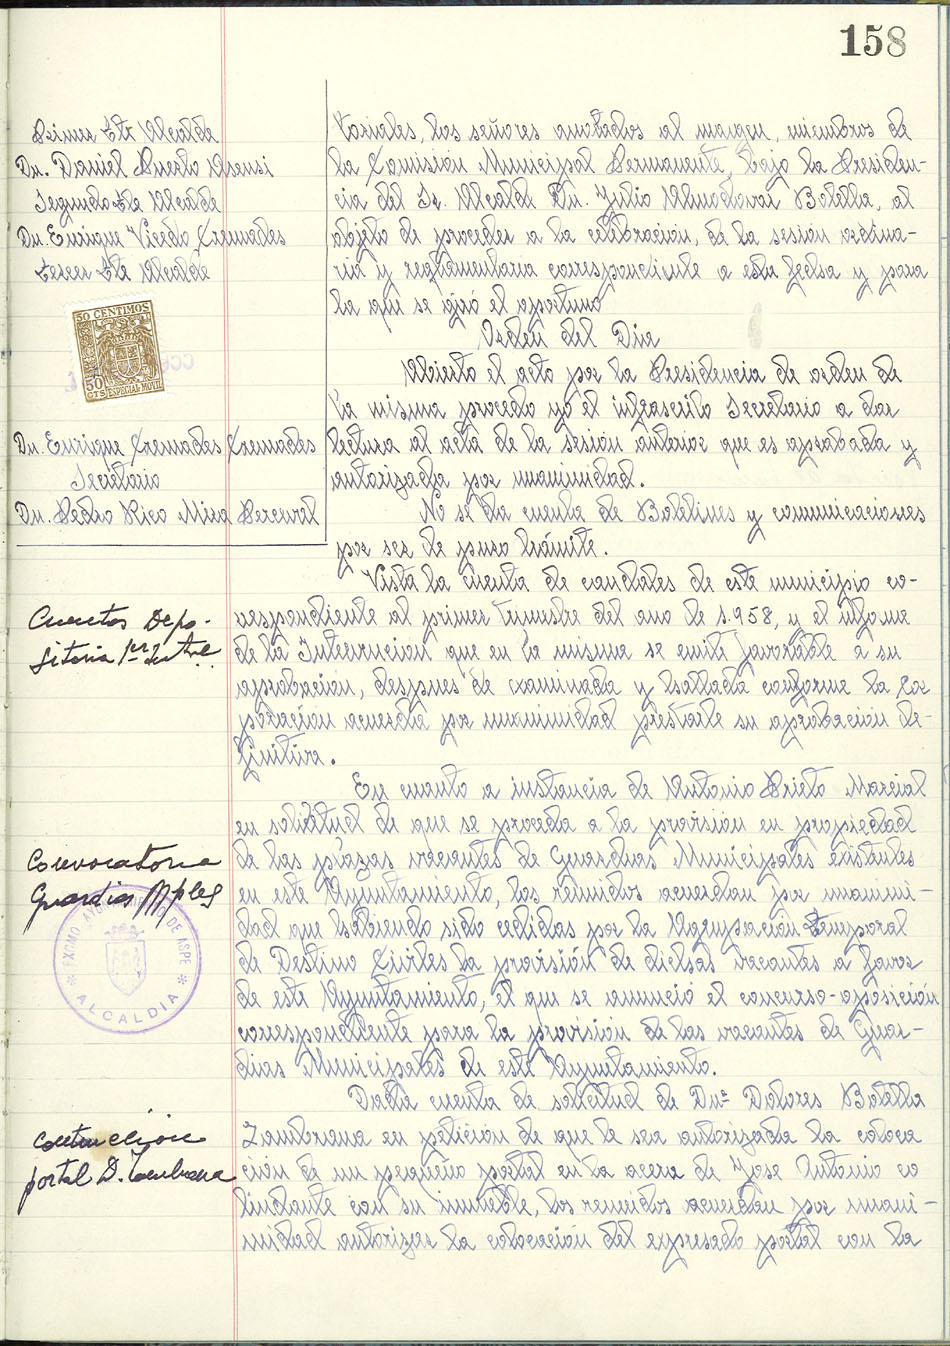 158
Primer Tte Alcalde
Dn. Daniel Puerto Asensi
Segundo Tte Alcalde
Dn. Enrique Vicedo Cremades
Tercer Tte Alcalde
50 CENTIMOS
50
CTS ESPECIAL MOVIL
Dn. Enrique Cremades Cremades
Secretario
Dn. Pedro Rico Mira Perceval
toriales, los señores anotados al margen, miembros de
la Comisión Municipal Permanente, bajo la Presiden-
cia del Sr. Alcalde Dn. Julio Almodovar Botella, al
objeto de proceder a la celebración, de la sesión ordina-
ria y reglamentaria correspondiente a esta fecha y para
la que se giró el oportuno
Orden del Dia
Abierto el acto por la Presidencia de orden de
la misma procedo yo el infrascrito Secretario a dar
lectura al acta de la sesión anterior que es aprobada y
autorizada por unanimidad.
No se da cuenta de Boletines y comunicaciones
por ser de puro trámite.
Cuentas Depo-
sitaria 1er Trtre.
Vista la cuenta de caudales de este municipio co-
rrespondiente al primer trimestre del ano de 1.958, y el informe
de la Intervención que en la misma se emite favorable a su
aprobación, después de examinada y hallada conforme la Cor
poración acuerda por unanimidad prestarle su aprobación de-
finitiva.
Convocatoria
Guardias Mples
EXCMO. AYUNTAMIENTO DE ASPE
* ALCALDIA *
En cuento a instancia de Antonio Prieto Marcial
en solicitud de que se proceda a la provisión en propiedad
de las plazas vacantes de Guardias Municipales existentes
en este Ayuntamiento, los reunidos acuerdan por unanimi-
dad que habiendo sido cedidas por la Agrupación Temporal
de Destino Civiles la provisión de dichas vacantes a favor
de este Ayuntamiento, el que se anunció el concurso-oposición
correspondiente para la provisión de las vacantes de Guar-
dias Municipales de este Ayuntamiento.
Contrucción
portal D. Zambrana
Dada cuenta de solicitud de Dnª Dolores Botella
Zambrana en petición de que le sea autorizada la coloca
ción de un pequeño portal en la acera de Jose Antonio co
lindante con su inmueble, los reunidos acuerdan por unani-
midad autorizar la colocación del expresado portal con la